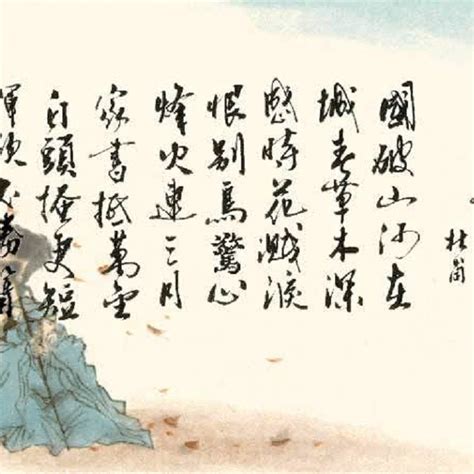 杜甫
國破山河在
城春草木深
感時花濺淚
恨别鳥驚心
烽火連三月
家書抵萬金
白頭搔更短
渾欲不勝簪